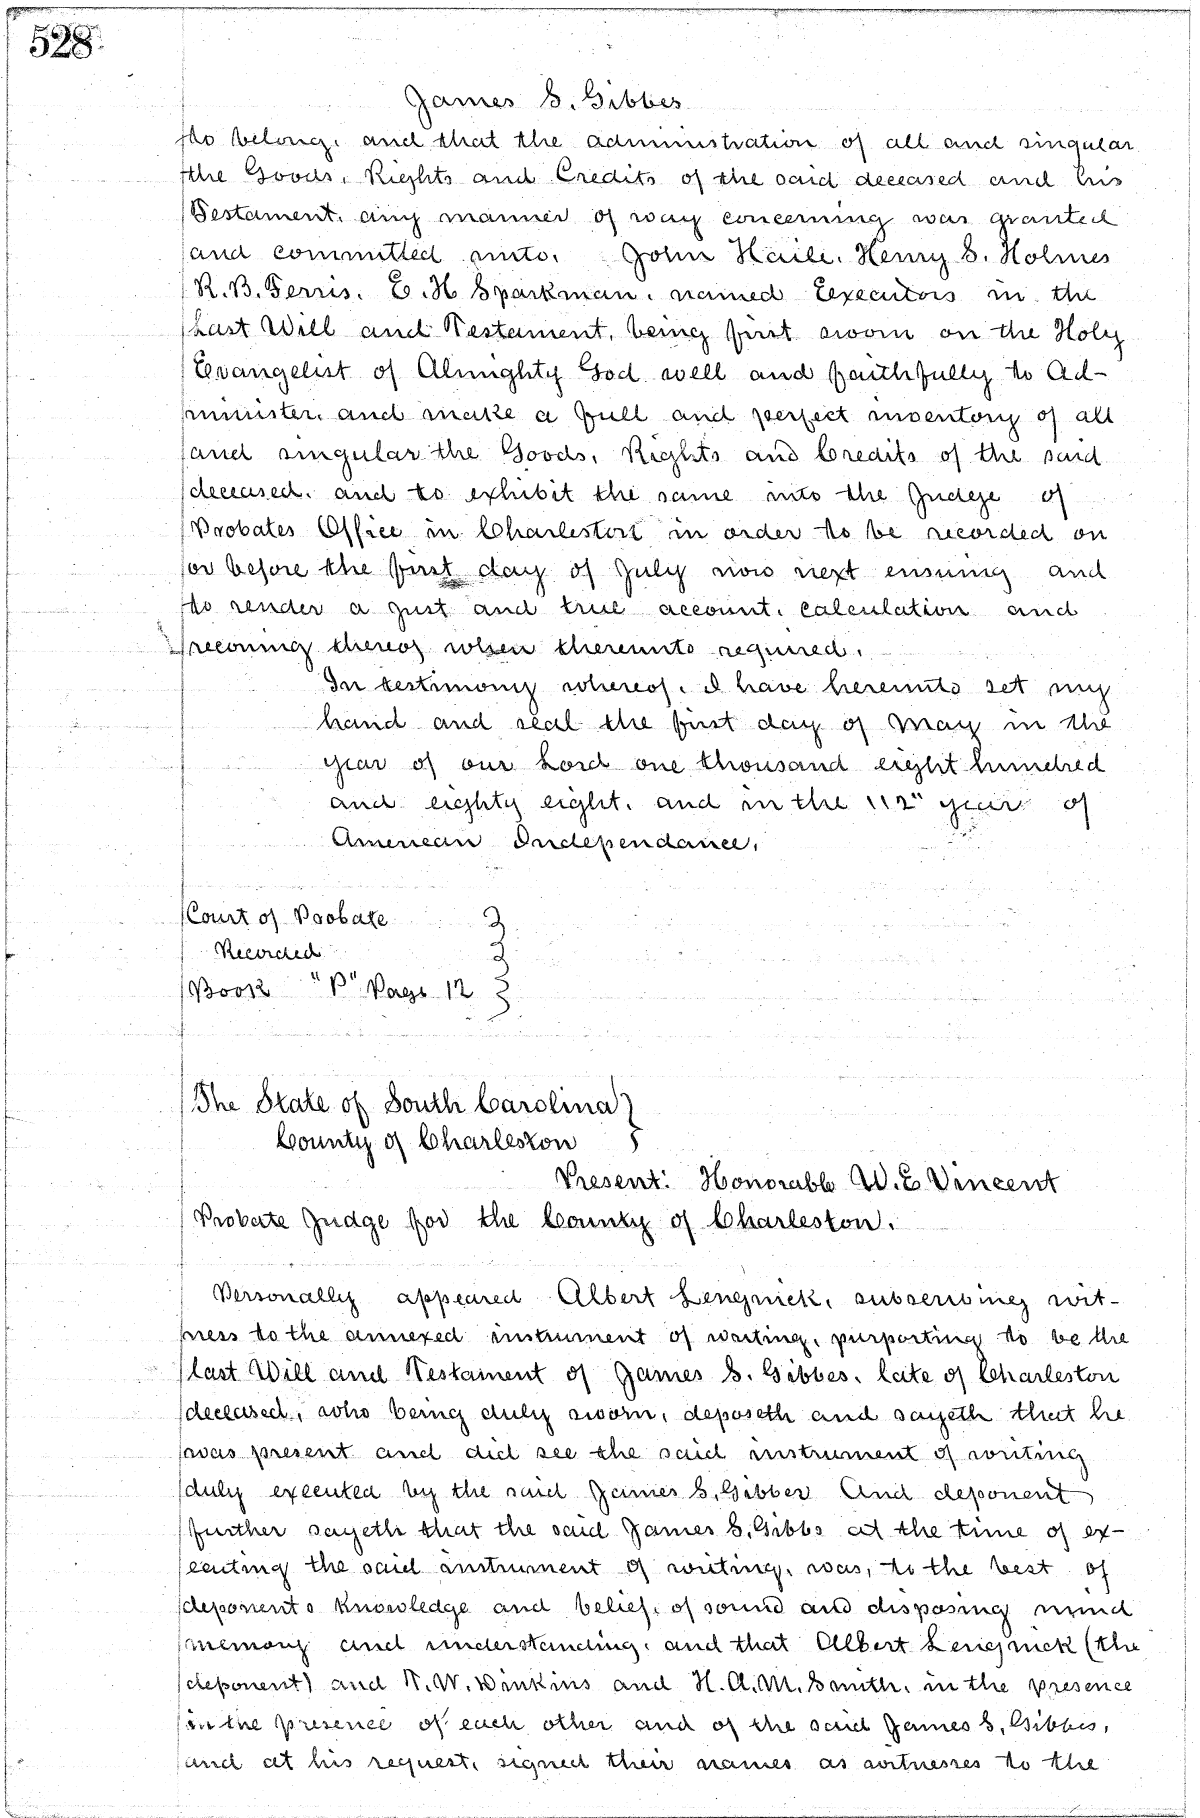 528
James S. Gibbes
to belong, and that the administration of all and singular
the Goods, Rights and Credits of the said deceased and his
Testament, any manner of way concerning was granted
and committed unto, John Haile, Henry S. Holmes
R. B. Ferris, E. H Sparkman, named Executors in the
Last Will and Testament, being first sworn on the Holy
Evangelist of Almighty God well and faithfully to Ad-
minister, and make a full and perfect inventory of all
and singular the Goods, Rights and Credits of the said
deceased, and to exhibit the same into the Judge of
Probates Office in Charleston in order to be recorded on
or before the first day of July now next ensuing and
to render a just and true account, calculation and
reconing thereof when thereunto required.
In testimony whereof, I have hereunto set my
hand and seal the first day of May in the
year of our Lord one thousand eight hundred
and eighty eight, and in the 112" year of
American Independance.
Court of Probate
Recorded
Book "P" Page 12
The State of South Carolina
County of Charleston
Present: Honorable W. E Vincent
Probate Judge for the County of Charleston.
Personally appeared Albert Lengnick, subscribing wit-
ness to the annexed instrument of writing, purporting to be the
last Will and Testament of James S. Gibbes, late of Charleston
deceased, who being duly sworn, deposeth and sayeth that he
was present and did see the said instrument of writing
duly executed by the said James S. Gibbes And deponent
further sayeth that the said James S. Gibbs at the time of ex-
ecuting the said instrument of writing, was, to the best of
deponents knowledge and belief, of sound and disposing mind
memory and understanding, and that Albert Lengnick (the
deponent) and T. W. Winkins and H. A. M. Smith, in the presence
in the presence of each other and of the said James S. Gibbes,
and at his request, signed their names as witnesses to the